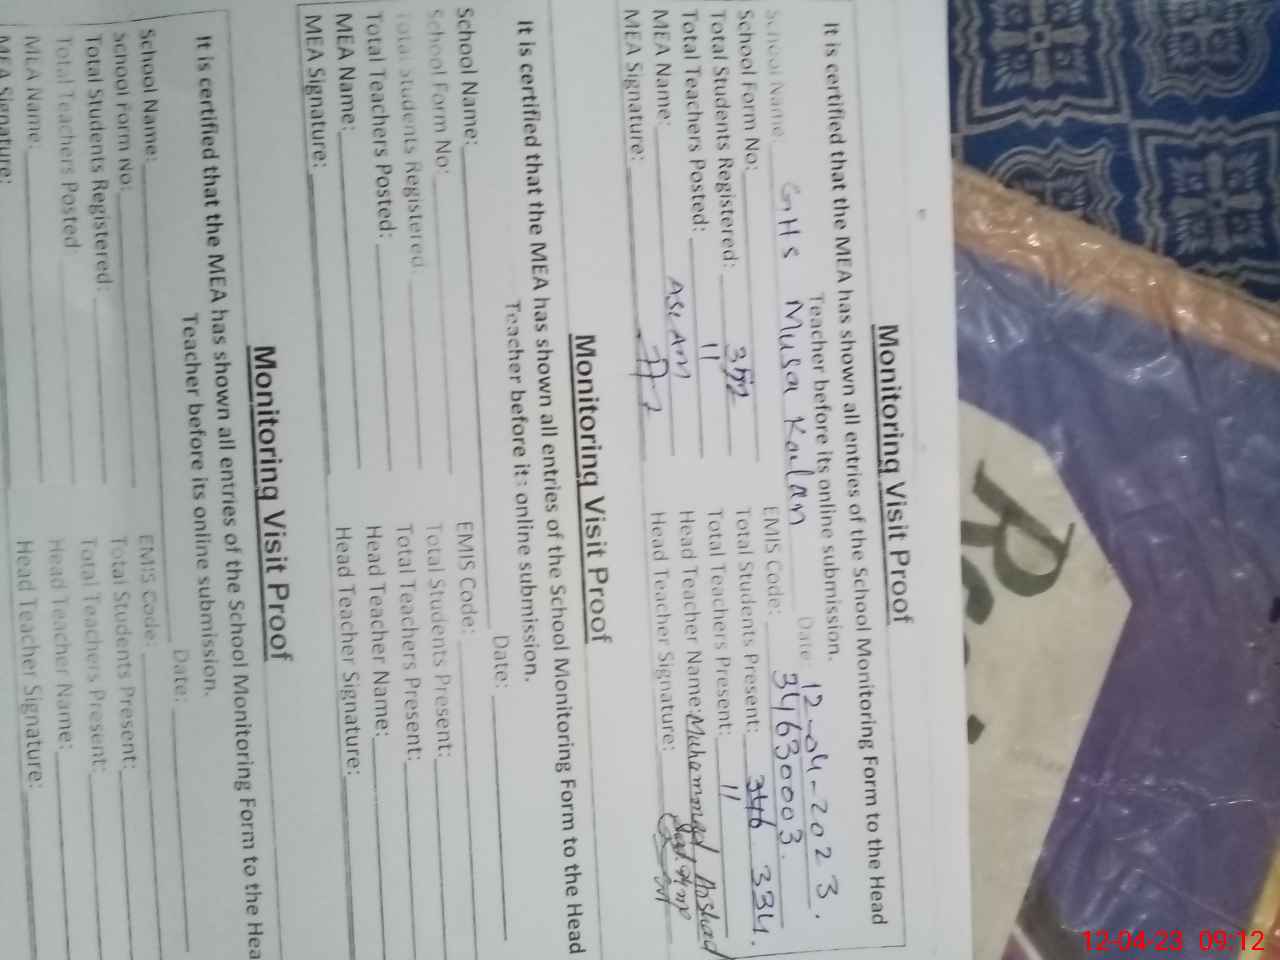 Monitoring Visit Proof
It is certified that the MEA has shown all entries of the School Monitoring Form to the Head
Teacher before its online submission.
School Name: GHS Musa Kalan Date: 12-04-2023.
School Form No: EMIS Code: 34630003.
Total Students Registered: Total Students Present: 346 334.
Total Teachers Posted: 11 Total Teachers Present: 11
MEA Name: ASLAM Head Teacher Name: Muhammad Arshad
MEA Signature: Head Teacher Signature:
Monitoring Visit Proof
It is certified that the MEA has shown all entries of the School Monitoring Form to the Head
Teacher before its online submission.
School Name: Date:
School Form No: EMIS Code:
Total Students Registered: Total Students Present:
Total Teachers Posted: Total Teachers Present:
MEA Name: Head Teacher Name:
MEA Signature: Head Teacher Signature:
Monitoring Visit Proof
It is certified that the MEA has shown all entries of the School Monitoring Form to the Hea
Teacher before its online submission.
School Name: Date:
School Form No: EMIS Code:
Total Students Registered: Total Students Present:
Total Teachers Posted: Total Teachers Present:
MEA Name: Head Teacher Name:
MEA Signature: Head Teacher Signature:
12-04-23 09:12